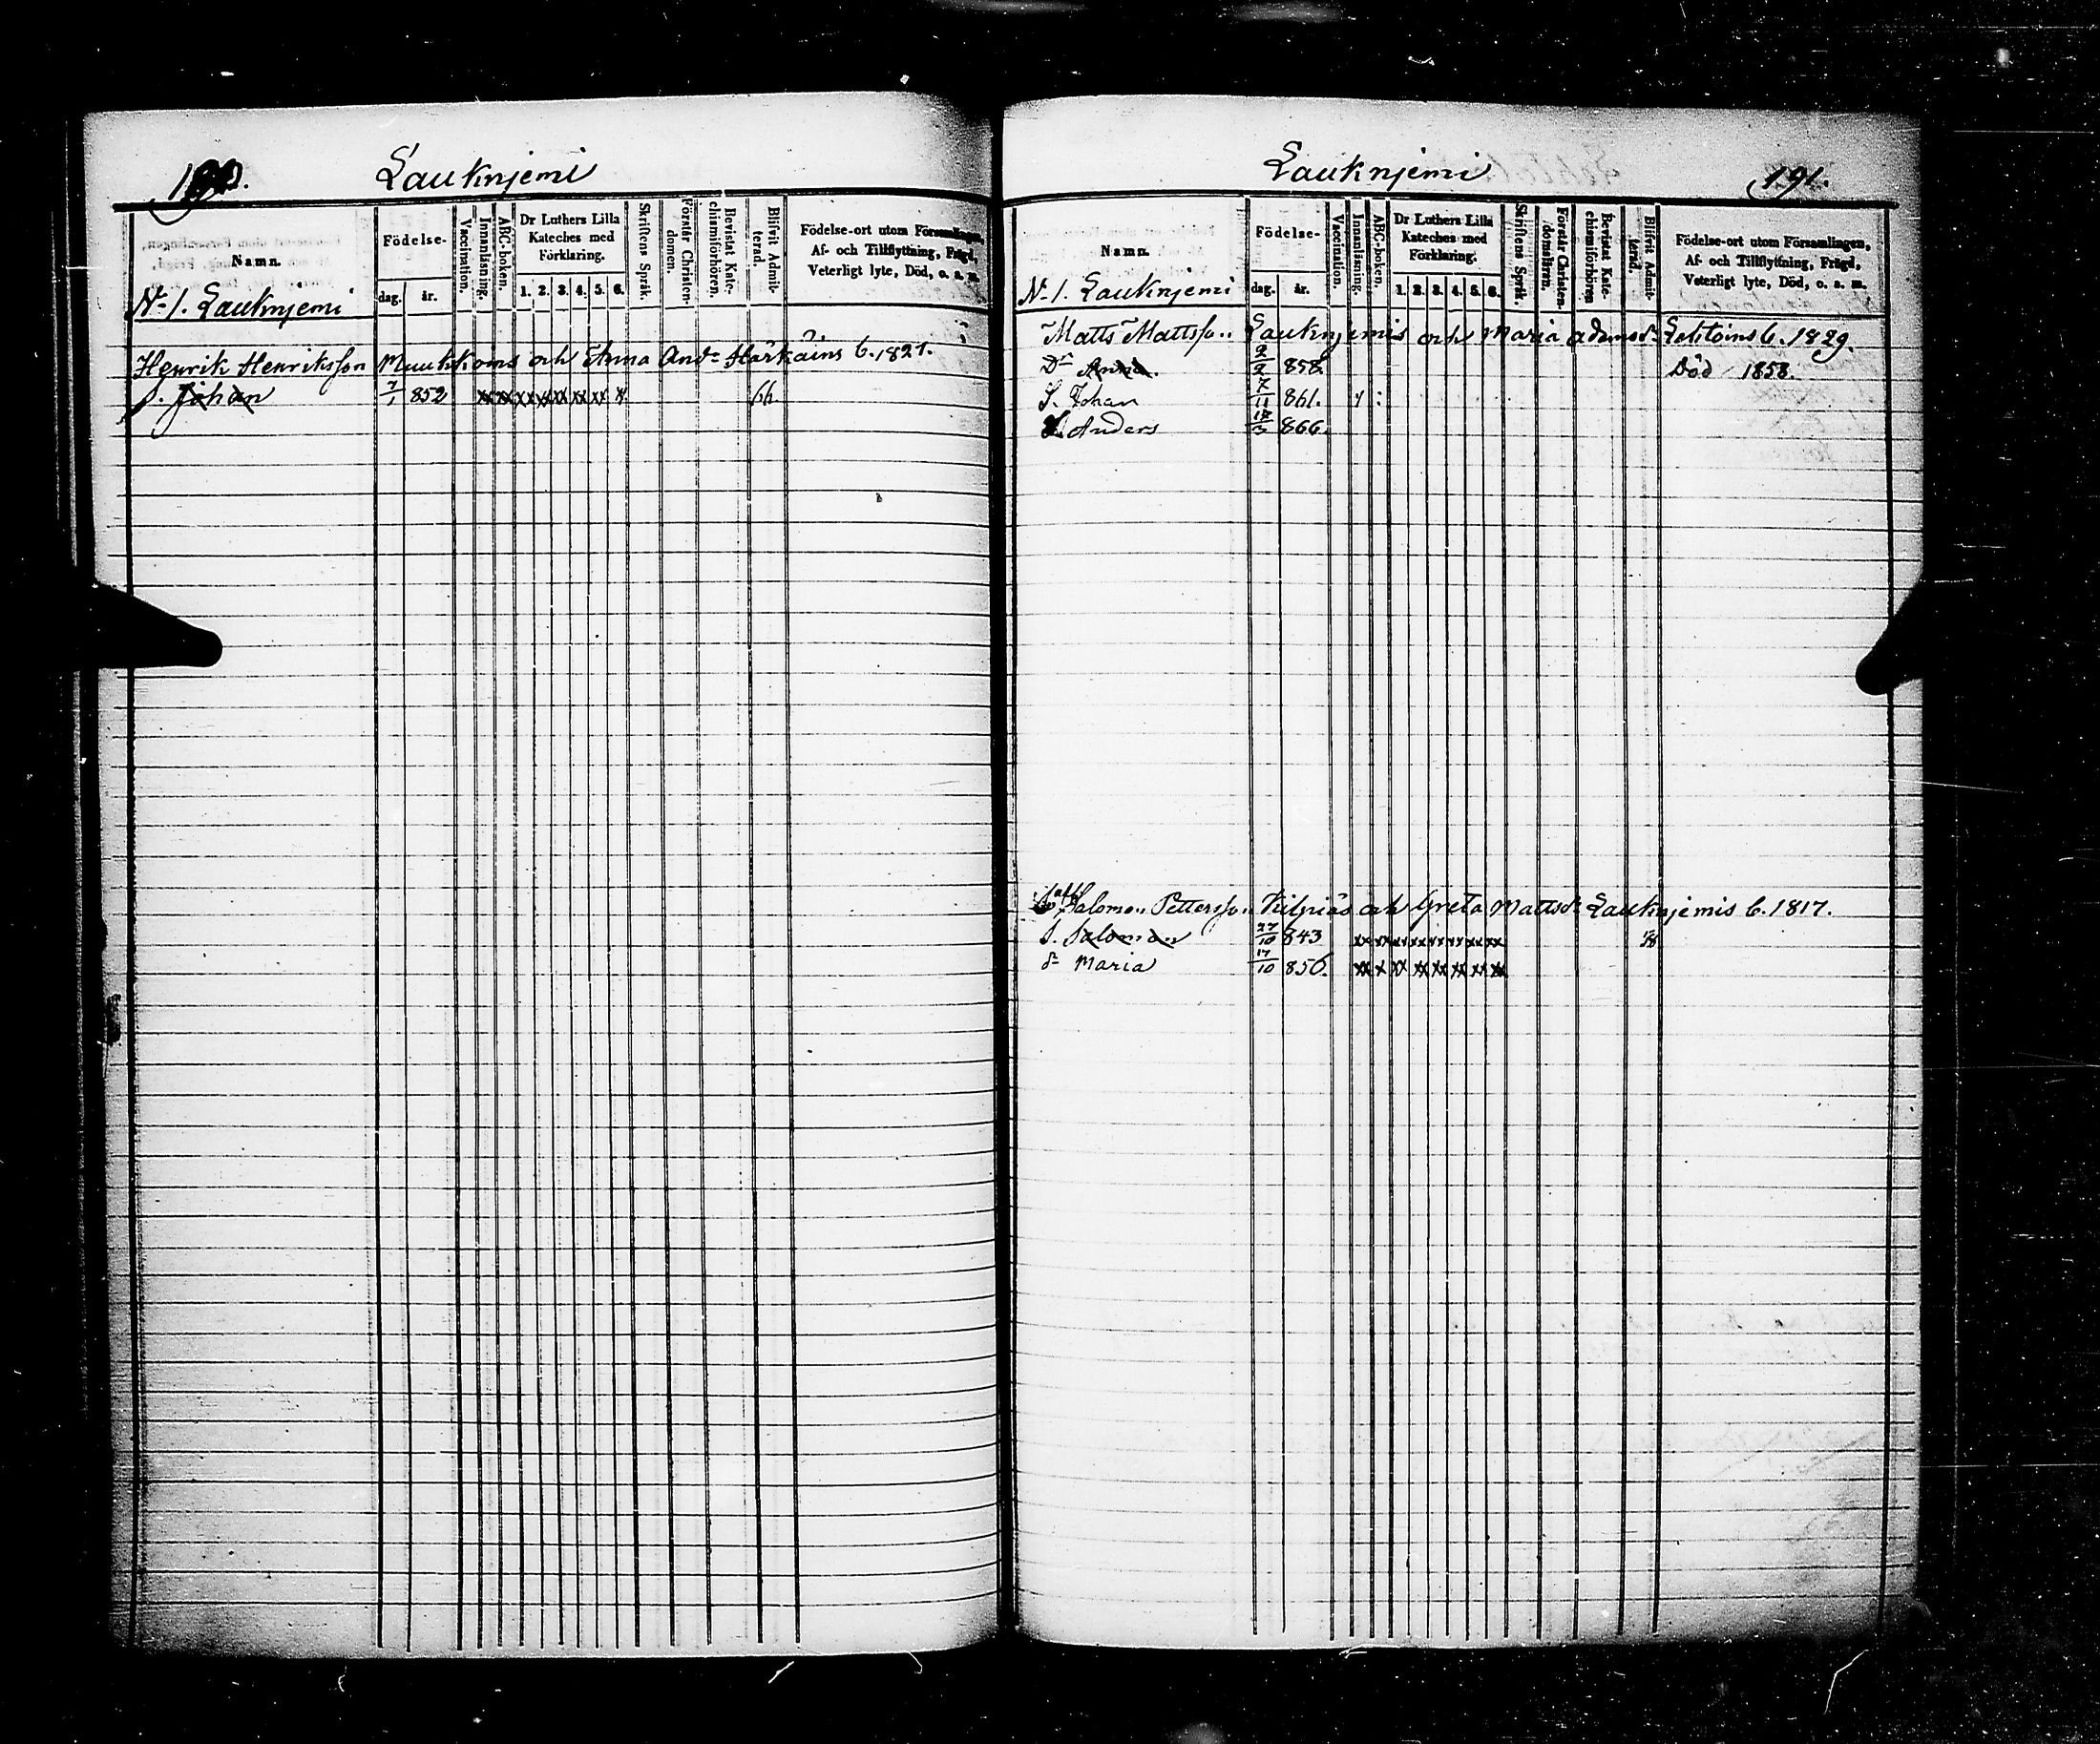 190.
Lauknjemi
Namn.
Födelse-
dag. år.
Vaccination.
Innanläsning.
ABC-boken.
Dr Luthers Lilla
Kateches med
Förklaring.
1. 2. 3. 4. 5. 6.
Skriftens Språk.
Förstår Christen-
domen.
Bevistat Kate-
chismiförhören.
Blifvit Admit-
terad.
Födelse-ort utom Församlingen,
Af- och Tillflyttning, Frägd,
Veterligt lyte, Död, o. s. m.
N-1. Lauknjemi
Henrik Henriksson Muukkoins och Anna Andr Härkäins b. 1821.
S. Johan 7/1 852 xx xx xx xx xx xx xx x 66
Lauknjemi
191.
Namn.
Födelse-
dag. år.
Vaccination.
Innanläsning.
ABC-boken.
Dr Luthers Lilla
Kateches med
Förklaring.
1. 2. 3. 4. 5. 6.
Skriftens Språk.
Förstår Christen-
domsläran.
Bevistat Kate-
chismiförhören
Blifvit Admit-
terad.
Födelse-ort utom Församlingen,
Af- och Tillflyttning, Frägd,
Veterligt lyte, Död, o. s. m.
N-1. Lauknjemi
Matts Mattsson Lauknjemis och Maria Adamsdr b. 1829.
Dr Anna. 2/2 858. Död 1858.
S. Johan 7/11 861.
S. Anders 866.
Salomon Pettersson och Greta Mattsdr Lauknjemis b. 1817.
S. Salomon 27/10 843 xx xx xx xx xx xx xx xx
dr Maria 17/10 850. xx x xx xx xx xx xx xx